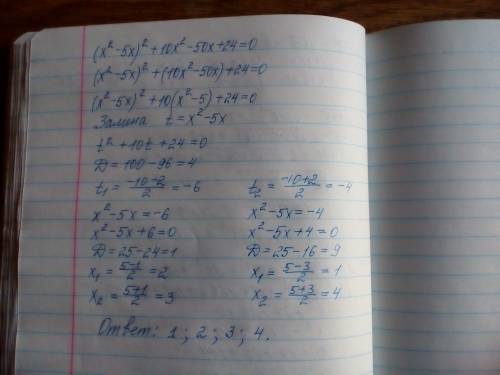 (x²-5x)²+10x²-50x+24=0
(x²-5x)²+(10x²-50x)+24=0
(x²-5x)²+10(x²-5)+24=0
Замена t=x²-5x
t²+10t+24=0
D=100-96=4
t₁=(-10-2)/2=-6 t₂=(-10+2)/2=-4
x²-5x=-6 x²-5x=-4
x²-5x+6=0 x²-5x+4=0
D=25-24=1 D=25-16=9
x₁=(5-1)/2=2 x₁=(5-3)/2=1
x₂=(5+1)/2=3 x₂=(5+3)/2=4
Ответ: 1; 2; 3; 4.